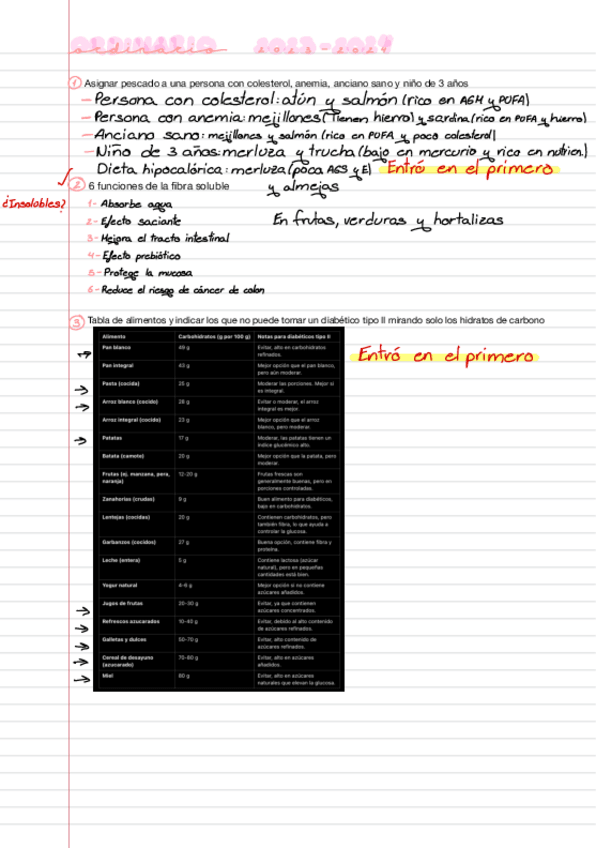 ORDINARIO 2023-2024
ordinario
1 Asignar pescado a una persona con colesterol, anemia, anciano sano y niño de 3 años
- Persona con colesterol: atún y salmón (rico en AGM y PUFA)
- Persona con anemia: mejillones (Tienen hierro) y sardina (rico en PUFA y hierro)
- Anciano sano: mejillones y salmón (rico en PUFA y poco colesterol)
- Niño de 3 años: merluza y trucha (bajo en mercurio y rico en nutrien.)
Dieta hipocalórica: merluza (poca AGS y E) Entró en el primero
y almejas
2 6 funciones de la fibra soluble
¿Insolobles?
1- Absorbe agua
2- Efecto saciante
En frutas, verduras y hortalizas
3- Mejora el tracto intestinal
4- Efecto prebiótico
5- Protege la mucosa
6- Reduce el riesgo de cáncer de colon
3 Tabla de alimentos y indicar los que no puede tomar un diabético tipo II mirando solo los hidratos de carbono
Entró en el primero
Alimento Carbohidratos (g por 100 g) Notas para diabéticos tipo II
Pan blanco 49 g Evitar, alto en carbohidratos
refinados.
Pan integral 43 g Mejor opción que el pan blanco,
pero aún moderar.
Pasta (cocida) 25 g Moderar las porciones. Mejor si
es integral.
Arroz blanco (cocido) 28 g Evitar o moderar, el arroz
integral es mejor.
Arroz integral (cocido) 23 g Mejor opción que el arroz
blanco, pero moderar.
Patatas 17 g Moderar, las patatas tienen un
índice glucémico alto.
Batata (camote) 20 g Mejor opción que la patata, pero
moderar.
Frutas (ej. manzana, pera, 12-20 g Frutas frescas son
naranja) generalmente buenas, pero en
porciones controladas.
Zanahorias (crudas) 9 g Buen alimento para diabéticos,
bajo en carbohidratos.
Lentejas (cocidas) 20 g Contienen carbohidratos, pero
también fibra, lo que ayuda a
controlar la glucosa.
Garbanzos (cocidos) 27 g Buena opción, contiene fibra y
proteína.
Leche (entera) 5 g Contiene lactosa (azúcar
natural), pero en pequeñas
cantidades está bien.
Yogur natural 4-6 g Mejor opción si no contiene
azúcares añadidos.
Jugos de frutas 20-30 g Evitar, ya que contienen
azúcares concentrados.
Refrescos azucarados 10-40 g Evitar, debido al alto contenido
de azúcares refinados.
Galletas y dulces 50-70 g Evitar, alto contenido de
azúcares refinados.
Cereal de desayuno 70-80 g Evitar, alto en azúcares
(azucarado) añadidos.
Miel 80 g Evitar, alto en azúcares
naturales que elevan la glucosa.